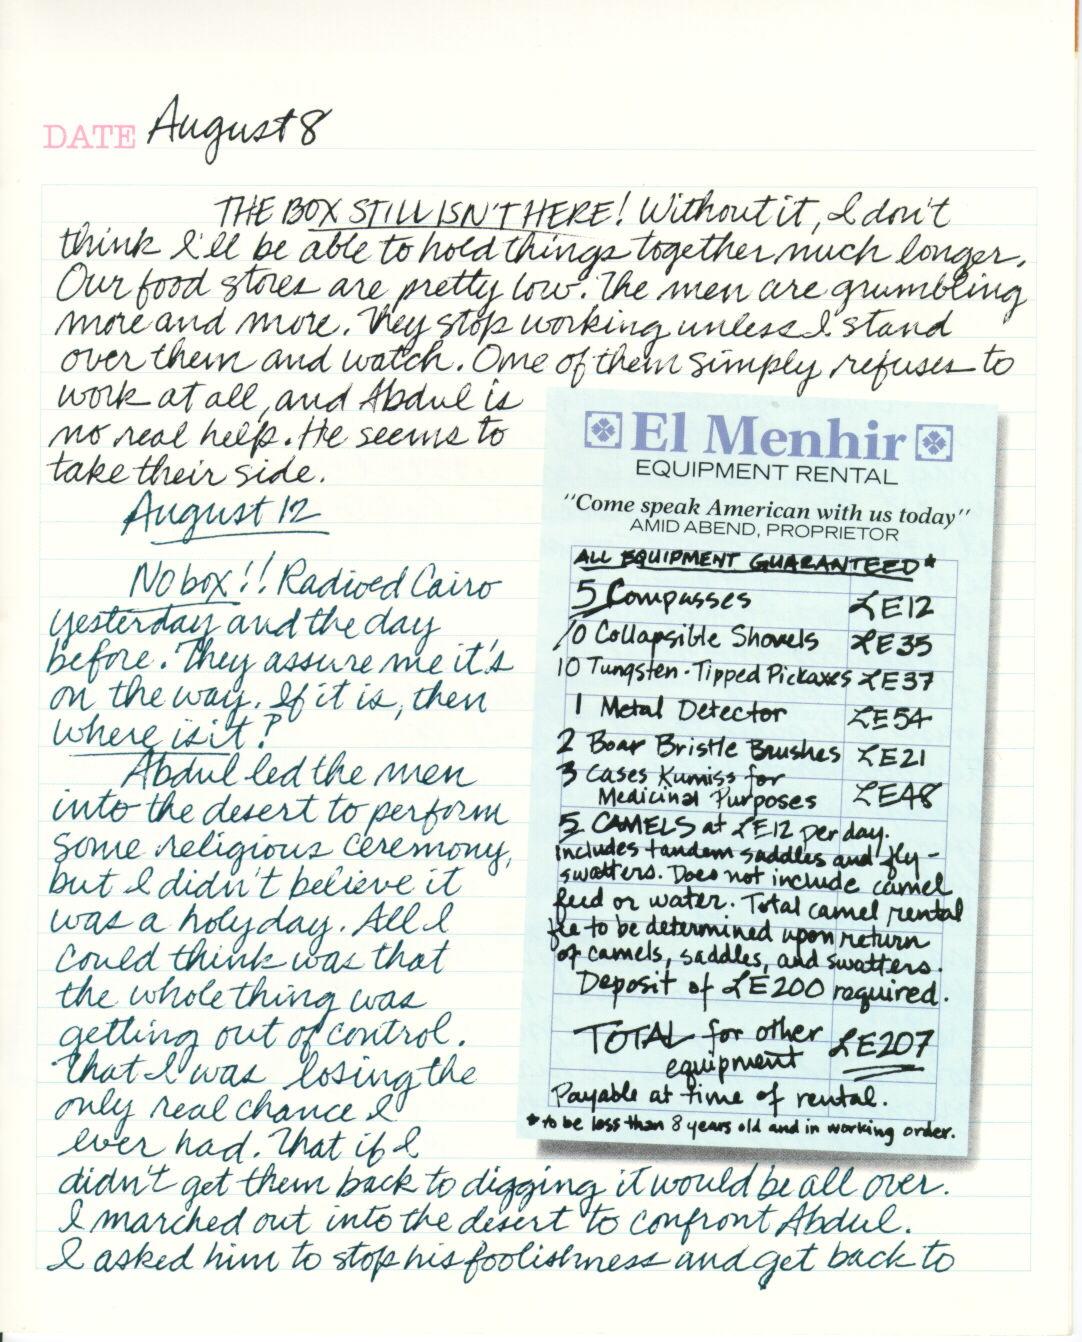 DATE August 8
THE BOX STILL ISN'T HERE! Without it, I don't
think I'll be able to hold things together much longer.
Our food stores are pretty low. The men are grumbling
more and more. They stop working unless I stand
over them and watch. One of them simply refuses to
work at all, and Abdul is
no real help. He seems to
take their side.
August 12
No box!! Radioed Cairo
yesterday and the day
before. They assure me it's
on the way. If it is, then
where is it?
Abdul led the men
into the desert to perform
some religious ceremony,
but I didn't believe it
was a holy day. All I
could think was that
the whole thing was
getting out of control.
That I was losing the
only real chance I
ever had. That if I
didn't get them back to digging it would be all over.
I marched out into the desert to confront Abdul.
I asked him to stop his foolishness and get back to
El Menhir
EQUIPMENT RENTAL
"Come speak American with us today"
AMID ABEND, PROPRIETOR
ALL EQUIPMENT GUARANTEED*
5 Compasses £E12
10 Collapsible Shovels £E35
10 Tungsten-Tipped Pickaxes £E37
1 Metal Detector £E54
2 Boar Bristle Brushes £E21
3 Cases Kumiss for
Medicinal Purposes £E48
5 CAMELS at £E12 per day.
includes tandem saddles and fly-
swatters. Does not include camel
feed or water. Total camel rental
fee to be determined upon return
of camels, saddles, and swatters.
Deposit of £E200 required.
TOTAL for other
equipment £E207
Payable at time of rental.
*to be less than 8 years old and in working order.